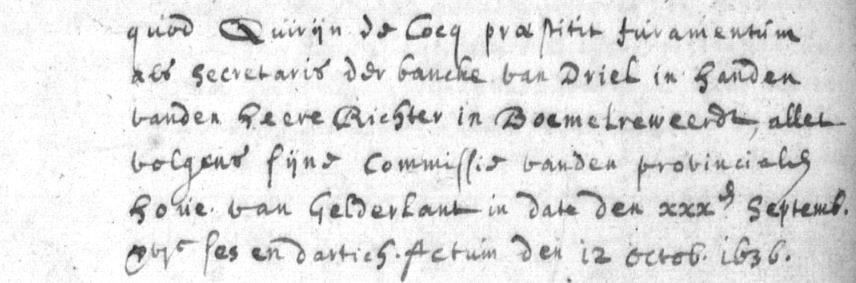 quod Quirijn de Cocq præstitit Juramentum
als secretaris der bancke van Driel in handen
vanden heere Richter in Boemelreweerdt, allet
volgens sijne Commissie vanden provincialen
hove van Gelderlant in date den xxxen Septemb.
xvjc ses en dartich. Actum den 12 octob. 1636.